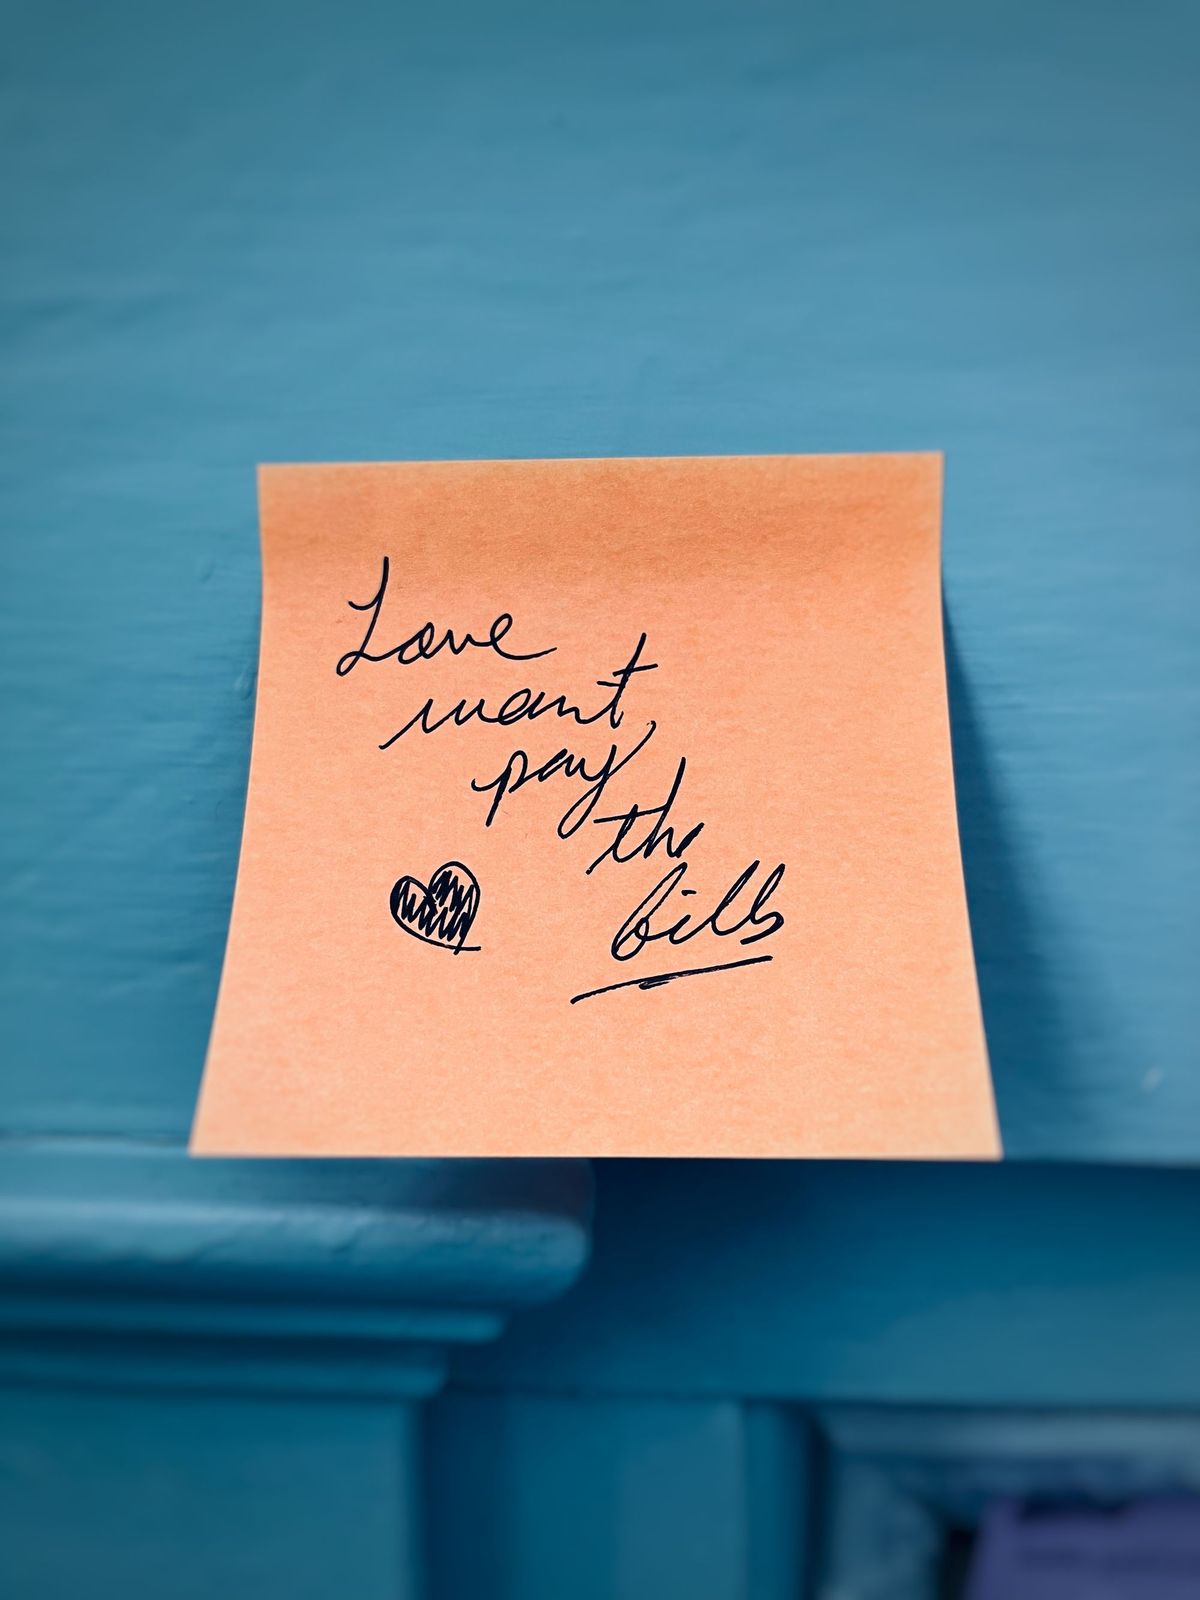 Love
wont
pay
the
bills